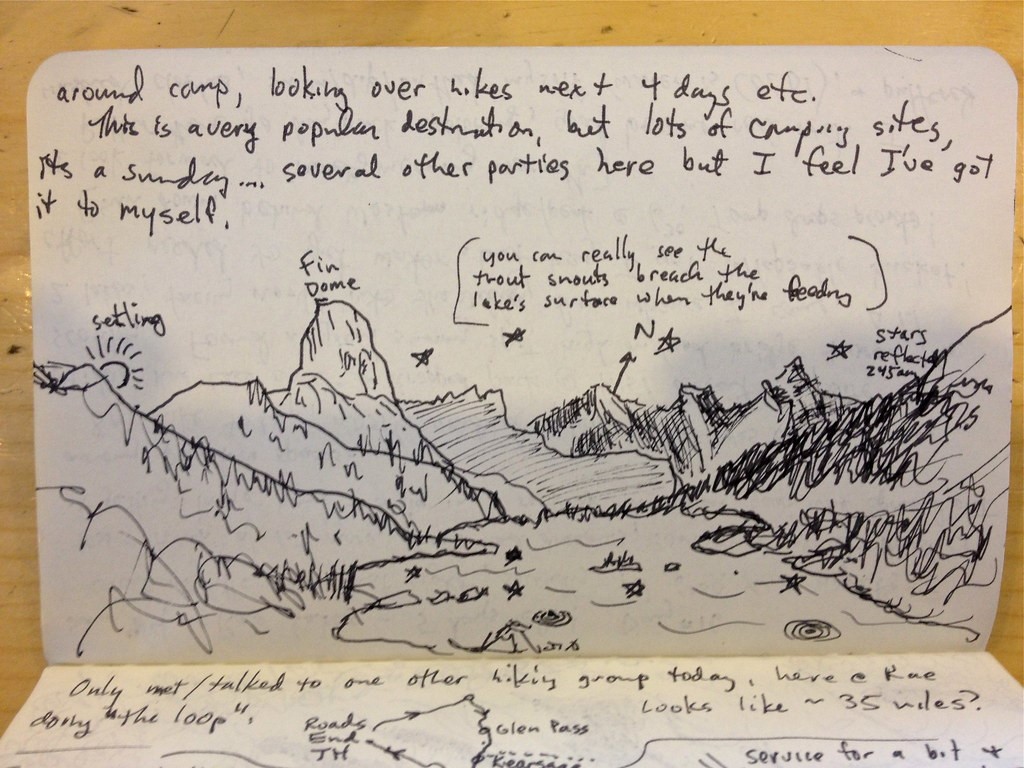 around camp, looking over hikes next 4 days etc.
This is a very popular destination, but lots of camping sites,
its a sunday... several other parties here but I feel I've got
it to myself.
you can really see the
trout snouts breach the
lake's surface when they're feeding
Fin
Dome
setting
N
stars
reflected
245am
Only met/talked to one other hiking group today, here @ Rae
doing "the loop".
Looks like ~ 35 miles?
Roads
End
TH
Glen Pass
Kearsarge
service for a bit +